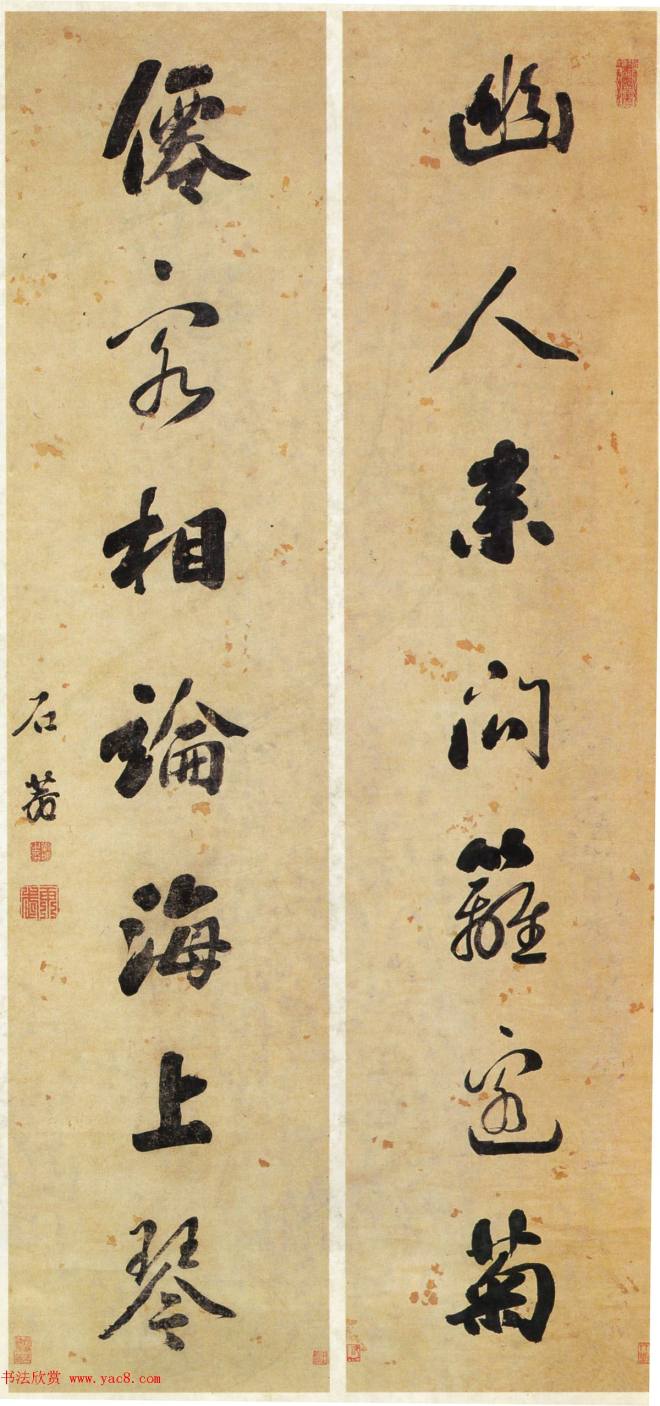 幽人來問籬邊菊
僊客相論海上琴
石菴
书法欣赏 www.yac8.com